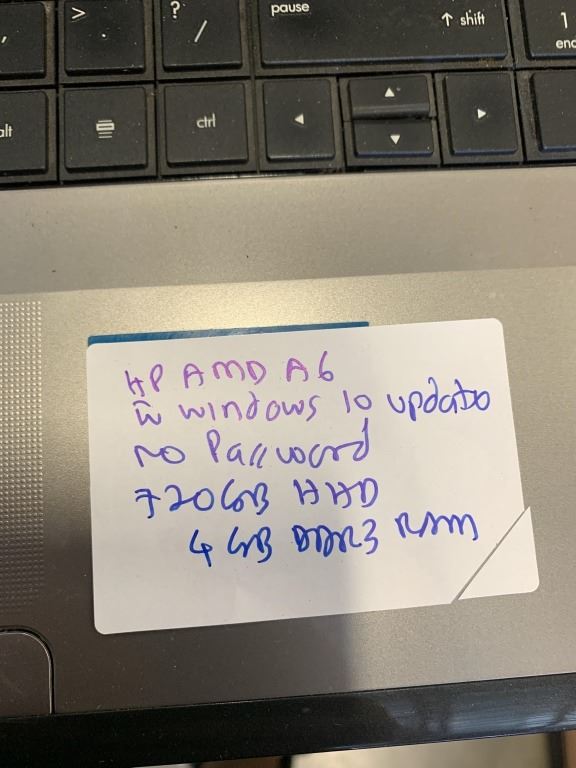 pause
>
.
?
/
↑ shift
1
end
,
alt
ctrl
HP AMD A6
windows 10 update
no Password
720GB HHD
4 GB DDR3 RAM